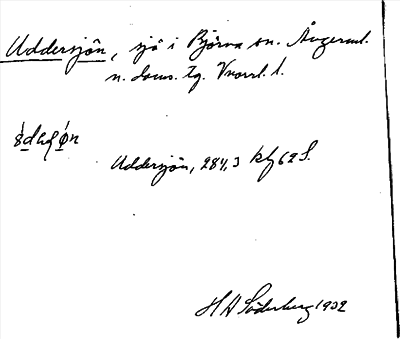 Uddersjön, sjö i Björna sn. Ångerml.
n. doms. tg. Vnorrl. l.
Uddersjön, 284,3 kbl 62 S.
H A Söderberg 1932